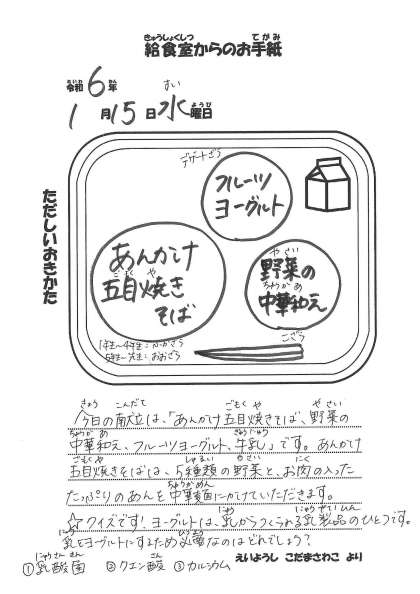 きゅうしょくしつ てがみ
給食室からのお手紙
れいわ ねん すい
令和6年
1月15日水曜日
ようび
デザートざら
フルーツ
ヨーグルト
ただしいおきかた
あんかけ
ごもくや
五目焼き
そば
やさい
野菜の
ちゅうかあ
中華和え
こざら
1年生~4年生:
5年生~先生:おおざら
きょう こんだて ごもくや やさい
今日の献立は、「あんかけ五目焼きそば、野菜の
ちゅうかあ ぎゅうにゅう
中華和え、フルーツヨーグルト、牛乳」です。あんかけ
ごもくや しゅるい やさい にく
五目焼きそばは、5種類の野菜と、お肉の入った
ちゅうかめん
たっぷりのあんを中華麺にかけていただきます。
にゅう にゅうせいひん
☆クイズです!ヨーグルトは、乳からつくられる乳製品のひとつです。
にゅう ひつよう
乳をヨーグルトにするため必要なのはどれでしょう?
にゅうさんきん さん
①乳酸菌 ②クエン酸 ③カルシウム
えいようし こだまさわこ より